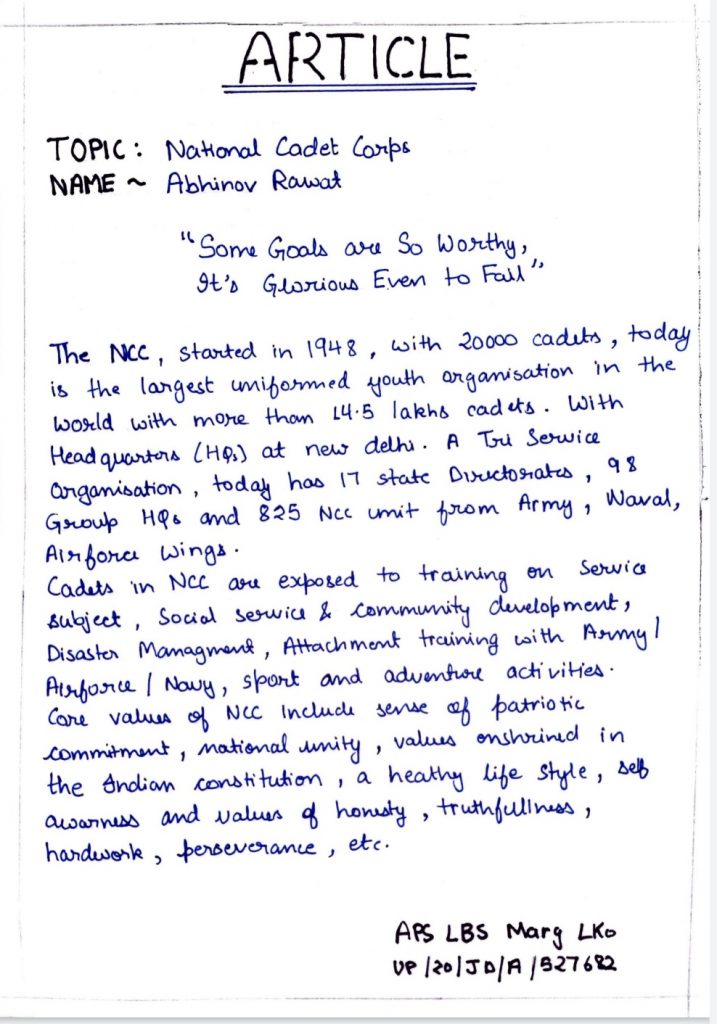 ARTICLE
TOPIC : National Cadet Corps
NAME ~ Abhinov Rawat
"Some Goals are So Worthy,
It's Glorious Even to Fail"
The NCC, started in 1948, with 20000 cadets, today
is the largest uniformed youth organisation in the
world with more than 14.5 lakhs cadets. With
Headquarters (HQs) at new delhi. A Tri Service
Organisation, today has 17 state Directorates, 98
Group HQs and 825 Ncc unit from Army, Naval,
Airforce wings.
Cadets in NCC are exposed to training on Service
subject, Social service & community development,
Disaster Managment, Attachment training with Army/
Airforce / Navy, sport and adventure activities.
Core values of NCC Include sense of patriotic
commitment, national unity, values enshrined in
the Indian constitution, a heathy life style, self
awarness and values of honesty, truthfullness,
hardwork, perseverance, etc.
APS LBS Marg LKo
UP/20/JD/A/527682